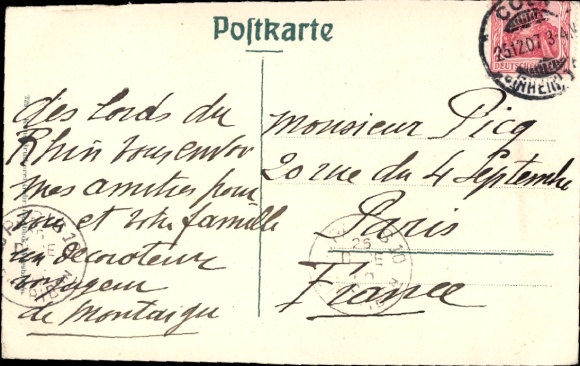 Postkarte
CÖLN
25.12.07 3-4N
DEUTSCHES
des bords du
Rhin vous envoi
mes amitiés pour
vous et votre famille
un decorateur
voyageur
de Montaigu
Monsieur Picq
20 rue du 4 Septembre
Paris
France
26
DE